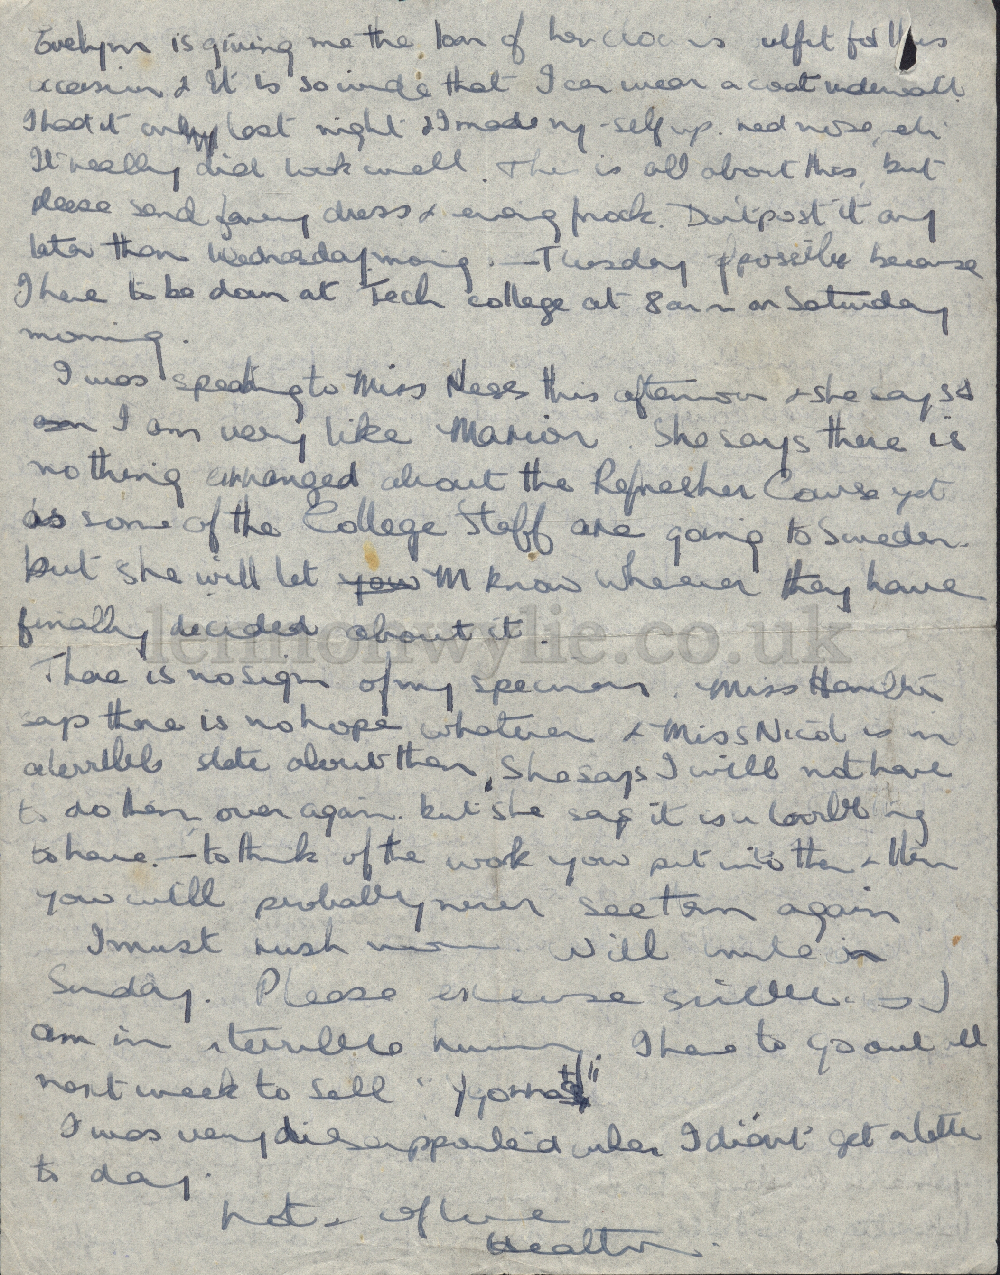 Evelyn is giving me the loan of her clown's outfit for this
occasion & it is so wide that I can wear a coat underneath.
I had it on last night & I made my-self up. red nose, etc.
It really did look well. This is all about this, but
please send fancy dress & evening frock. Don't post it any
later than Wednesday morning. — Tuesday if possible because
I have to be down at Tech college at 8am on Saturday
morning.
I was speaking to Miss this afternoon & she says
I am very like Marion. She says there is
nothing arranged about the Refresher Course yet
as some of the College Staff are going to Sweden.
but she will let you M know whenever they have
finally decided about it.
lennonwylie.co.uk
There is no sign of my specimens. Miss Hamilton
says there is no hope whatever & Miss Nicol is in
a terrible state about them, She says I will not have
to do them over again. but she says it is a
to have. — to think of the work you put into them & then
you will probably never see them again
I must rush now. Will write on
Sunday. Please excuse scribble as I
am in a terrible hurry. I have to go out all
next week to sell "Ygorras"
I was very disappointed when I didn't get a letter
to day.
Lots of love
Heather.